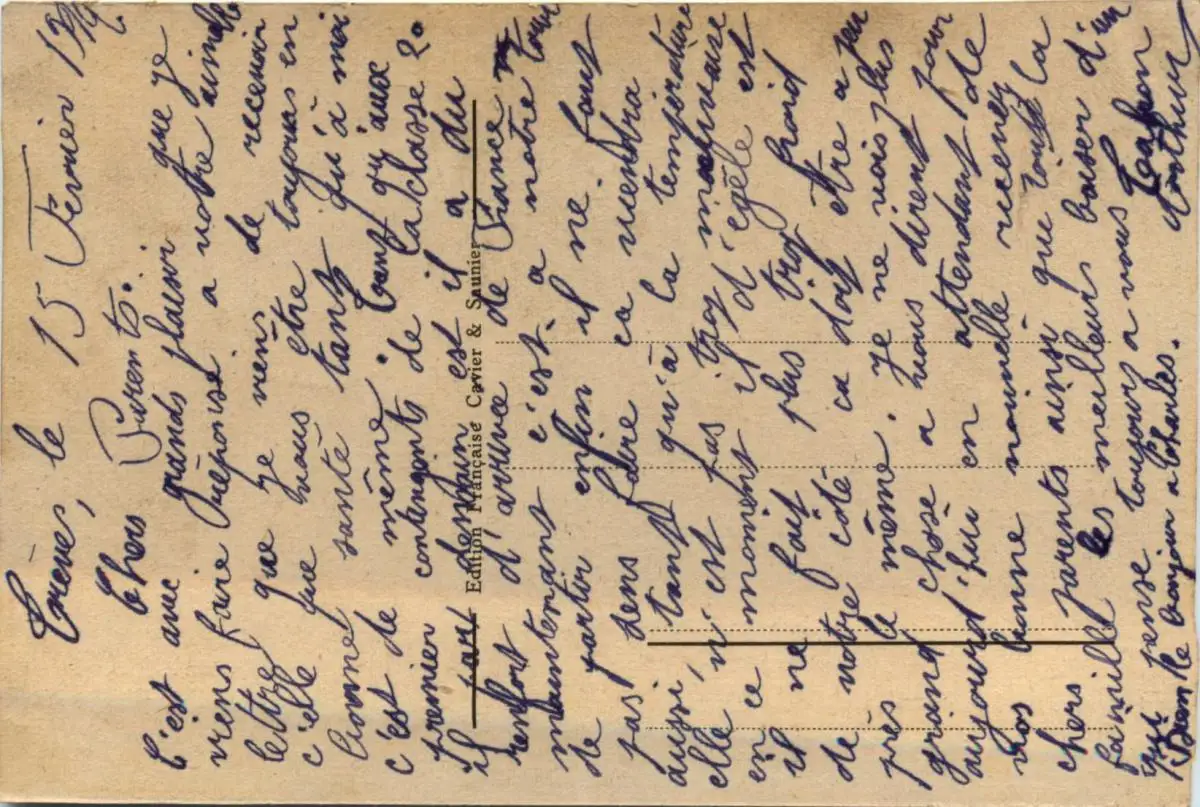 Trèves, le 15 Février 1922
Chers Parents.
C'est avec grands plaisir que je
viens faire réeponse a votre aimable
lettre que je viens de recevoir
c'elle que nous être toujours en
bonnet santé tant qu'à moi
c'est de même. tant qu'aux
premier contengents de la classe 20
il part demain est il a du
renfort d'arrivée de France
maintenant c'est a notre tour
de partir enfin il ne faut
pas sens faire ca viendra
aussi, tant qu'à la température
elle n'est pas trop mauvaise
en ce moment il d'égèle est
il ne fait plus trop froid
de votre côté ca doit être a peu
près le même. Je ne vois plus
grand chose a vous direns pour
aujourd'hui en attendant de
vos bonne nouvelle recevez
chers parents ainsi que la
famille les meilleurs baiser d'un
qui pense toujours a vous
Bien le bonjour a Charles.
Edition Française Cavier & Saunier